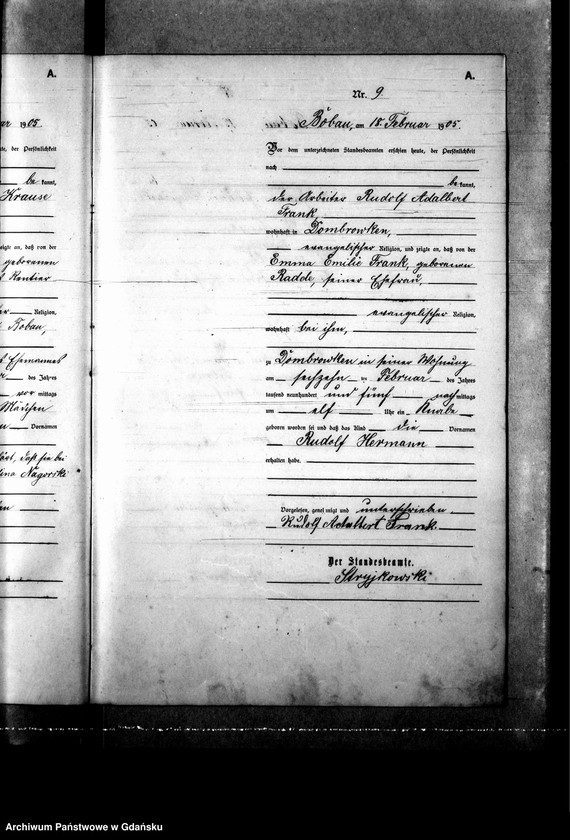 A.
1905.
te, der Persönlichkeit
be kannt,
Krause
zeigte an, daß von der
geborenen
Rentier
Religion,
Bobau,
Ehemannes
des Jahres
vor mittags
Mädchen
Vornamen
daß sie bei
Nagorski
A.
Nr. 9
Bobau, am 18. Februar 1905.
Vor dem unterzeichneten Standesbeamten erschien heute, der Persönlichkeit
nach
be kannt,
der Arbeiter Rudolf Adalbert
Frank,
wohnhaft in Dombrowken,
evangelischer Religion, und zeigte an, daß von der
Emma Emilie Frank, geborenen
Radde, seiner Ehefrau,
evangelischer Religion,
wohnhaft bei ihm,
zu Dombrowken in seiner Wohnung
am sechzehn ten Februar des Jahres
tausend neunhundert und fünf nach mittags
um elf Uhr ein Knabe
geboren worden sei und daß das Kind die Vornamen
Rudolf Hermann
erhalten habe.
Vorgelesen, genehmigt und unterschrieben
Rudolf Adalbert Frank.
Der Standesbeamte.
Stryjkowski
Archiwum Państwowe w Gdańsku